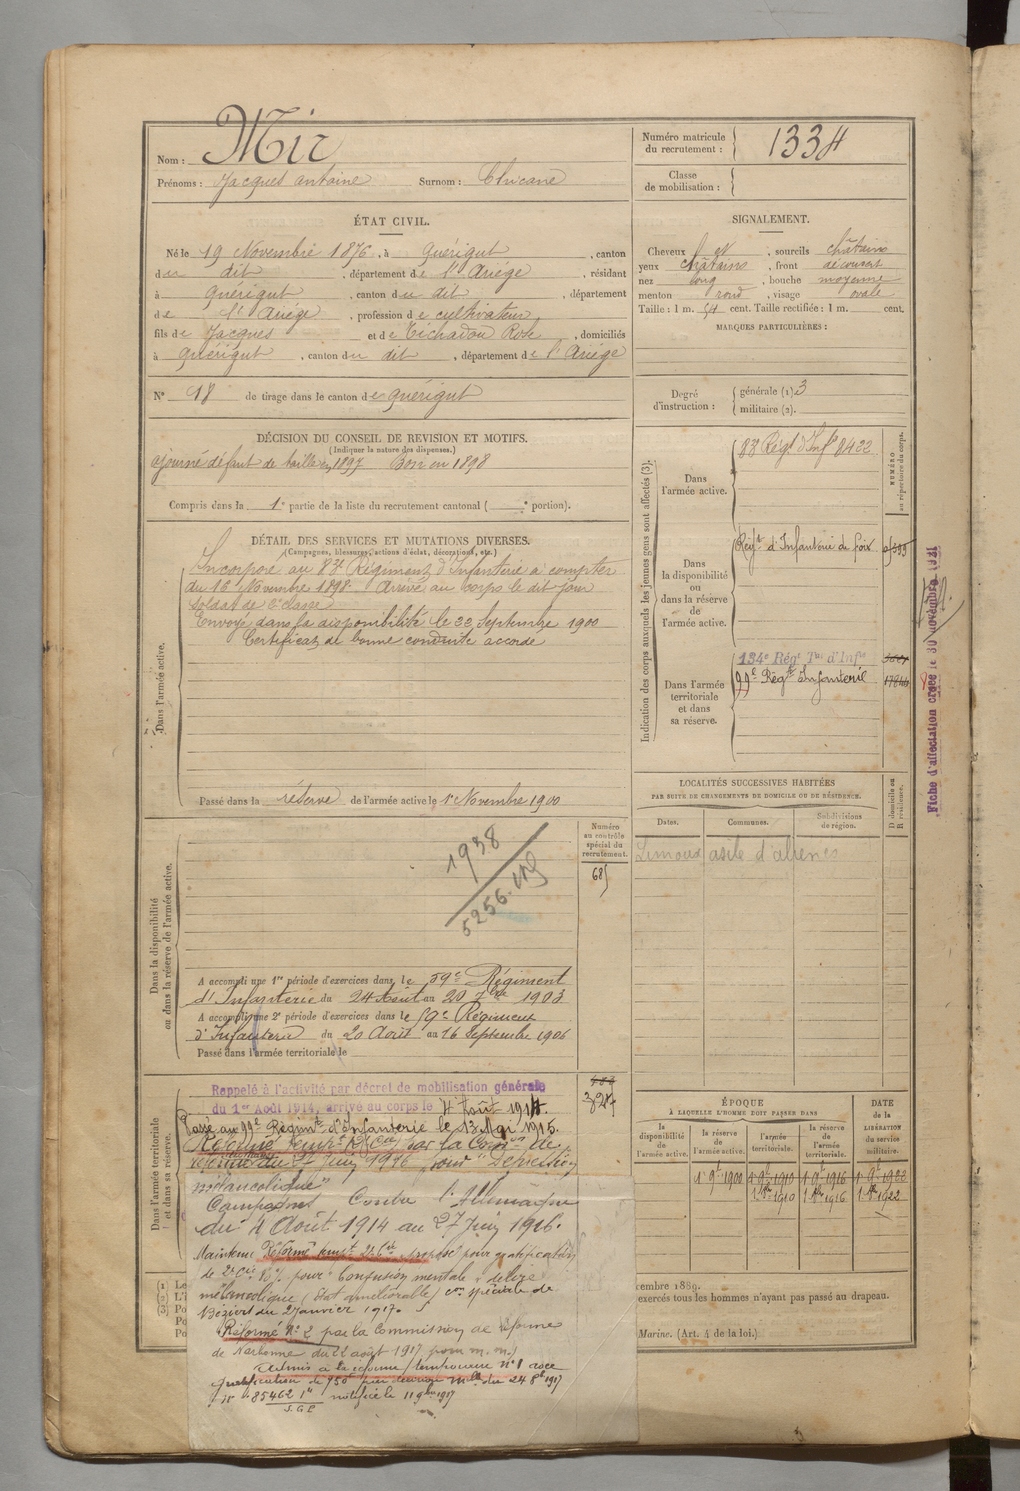 Nom : Mir
Prénoms : Jacques antoine Surnom : Chicane
Numéro matricule du recrutement : 1334
Classe de mobilisation :
ÉTAT CIVIL.
Né le 19 Novembre 1876, à Quérigut, canton
du dit, département de l'Ariége, résidant
à Quérigut, canton du dit, département
de l'Ariége, profession de cultivateur
fils de Jacques et de Tichadou Rose, domiciliés
à Quérigut, canton du dit, département de l'Ariége
N° 18 de tirage dans le canton de Quérigut
SIGNALEMENT.
Cheveux et, sourcils châtains
yeux châtains, front découvert
nez long, bouche moyenne
menton rond, visage ovale
Taille : 1 m. 54 cent. Taille rectifiée : 1 m. cent.
MARQUES PARTICULIÈRES :
Degré d'instruction : générale (1) 3
militaire (2).
DÉCISION DU CONSEIL DE REVISION ET MOTIFS.
(Indiquer la nature des dispenses.)
ajourné défaut de taille en 1897 Bon en 1898
Compris dans la 1e partie de la liste du recrutement cantonal ( e portion).
DÉTAIL DES SERVICES ET MUTATIONS DIVERSES.
(Campagnes, blessures, actions d'éclat, décorations, etc.)
Dans l'armée active.
Incorporé au 83e Régiment d'Infanterie à compter
du 16 Novembre 1898. Arrivé au corps le dit jour
soldat de 2e classe
Envoyé dans la disponibilité le 22 Septembre 1900
Certificat de bonne conduite accordé
Passé dans la réserve de l'armée active le 1er Novembre 1900
Indication des corps auxquels les jeunes gens sont affectés (3).
NUMÉRO au répertoire du corps.
Dans l'armée active.
83 Régt d'Infie 8422
Dans la disponibilité ou dans la réserve de l'armée active.
Régt d'Infanterie de foix
Dans l'armée territoriale et dans sa réserve.
134e Régt Tal d'Infie
99e Régt Infanterie
Fiche d'affectation créée le 30 novembre 1931
LOCALITÉS SUCCESSIVES HABITÉES
PAR SUITE DE CHANGEMENTS DE DOMICILE OU DE RÉSIDENCE.
D domicile ou R résidence.
Dates. Communes. Subdivisions de région.
Limoux asile d'aliénés
Dans la disponibilité ou dans la réserve de l'armée active.
Numéro au contrôle spécial du recrutement.
685
1938
5256
A accompli une 1re période d'exercices dans le 59e Régiment
d'Infanterie du 24 Aout au 20 7bre 1903
A accompli une 2e période d'exercices dans le 59e Régiment
d'Infanterie du 20 Aout au 16 Septembre 1906
Passé dans l'armée territoriale le
Dans l'armée territoriale et dans sa réserve.
Rappelé à l'activité par décret de mobilisation générale
du 1er Août 1914, arrivé au corps le 4 Août 1914.
Passé au 99e Régimt d'Infanterie le 13 Mai 1915.
Réformé tempre 2e Cie par la Comon de
réforme du 27 Juin 1916 pour "Dépression
mélancolique"
Campagnes Contre l'Allemagne
du 4 Août 1914 au 27 Juin 1916.
Maintenu Réformé tempre 2e Cie proposé pour gratification
de 2e Cie 80% pour Confusion mentale, délire
mélancolique (état améliorable) Con spéciale de
Béziers du 2 Janvier 1917.
Réformé N° 2 par la Commission de réforme
de Narbonne du 22 août 1917 pour m. m.
Admis à la réforme temporaire n° 1 avec
gratification de 750f par décision mlle du 24 8b 1917
N° 85462 1e notifié le 11 9bre 1917
S.G.P.
ÉPOQUE
À LAQUELLE L'HOMME DOIT PASSER DANS
la disponibilité de l'armée active.
la réserve de l'armée active.
l'armée territoriale.
la réserve de l'armée territoriale.
DATE de la LIBÉRATION du service militaire.
1 9e 1900 1 9e 1910 1 9e 1916 1 9e 1922
1 1910 1 1916 1 1922
cembre 1889.
exercés tous les hommes n'ayant pas passé au drapeau.
Marine. (Art. 4 de la loi.)